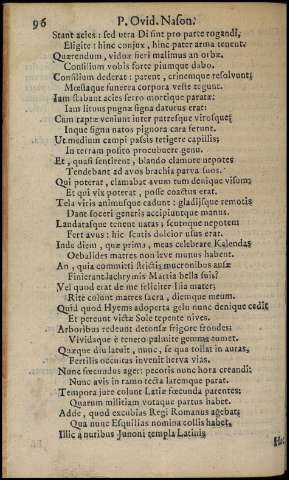 96 P. Ovid. Nason.
Stant acies: sed utra Di sint pro parte rogandi,
Eligite: hinc conjux, hinc pater arma tenet.
Quærendum, viduæ fieri malimus an orbæ.
Consilium vobis forte piumque dabo.
Consilium dederat: parent, crinemque resolvunt;
Mœstaque funerea corpora veste tegunt.
Iam stabant acies ferro mortique paratæ:
Iam lituus pugnæ signa daturus erat:
Cum raptæ veniunt inter patresque virosque;
Inque signa natos pignora cara ferunt.
Ut medium campi passis tetigere capillis;
In terram posito procubuere genu.
Et, quasi sentirent, blando clamore nepotes
Tendebant ad avos brachia parva suos.
Qui poterat, clamabat avum tum denique visum;
Et qui vix poterat, posse coactus erat.
Tela viris animusque cadunt: gladiisque remotis
Dant soceri generis accipiuntque manus.
Laudatasque tenent natas; scutoque nepotem
Fert avus: hic scutis dolcior usus erat.
Inde diem, quæ prima, meas celebrare Kalendas
Oebalides matres non leve munus habent.
An, quia committi strictis mucronibus ausæ
Finierant lachrymis Martia bella suis?
Vel quod erat de me feliciter Ilia mater;
Rite colunt matres sacra, diemque meum.
Quid quod Hyems adoperta gelu nunc denique cedit
Et pereunt victæ Sole tepente nives.
Arboribus redeunt detonsæ frigore frondes;
Vividaque è tenero palmite gemma tumet.
Quæque diu latuit, nunc, se qua tollat in auras,
Fertilis occultas invenit herva vias.
Nunc fœcundus ager: pecoris nunc hora creandi:
Nunc avis in ramo tecta laremque parat.
Tempora jure colunt Latiæ fœcunda parentes:
Quarum militiam votaque partus habet.
Adde, quod excubias Regi Romanus agebat;
Qua nunc Esquilias nomina collis habet.
Illic à nuribus Junoni templa Latinis